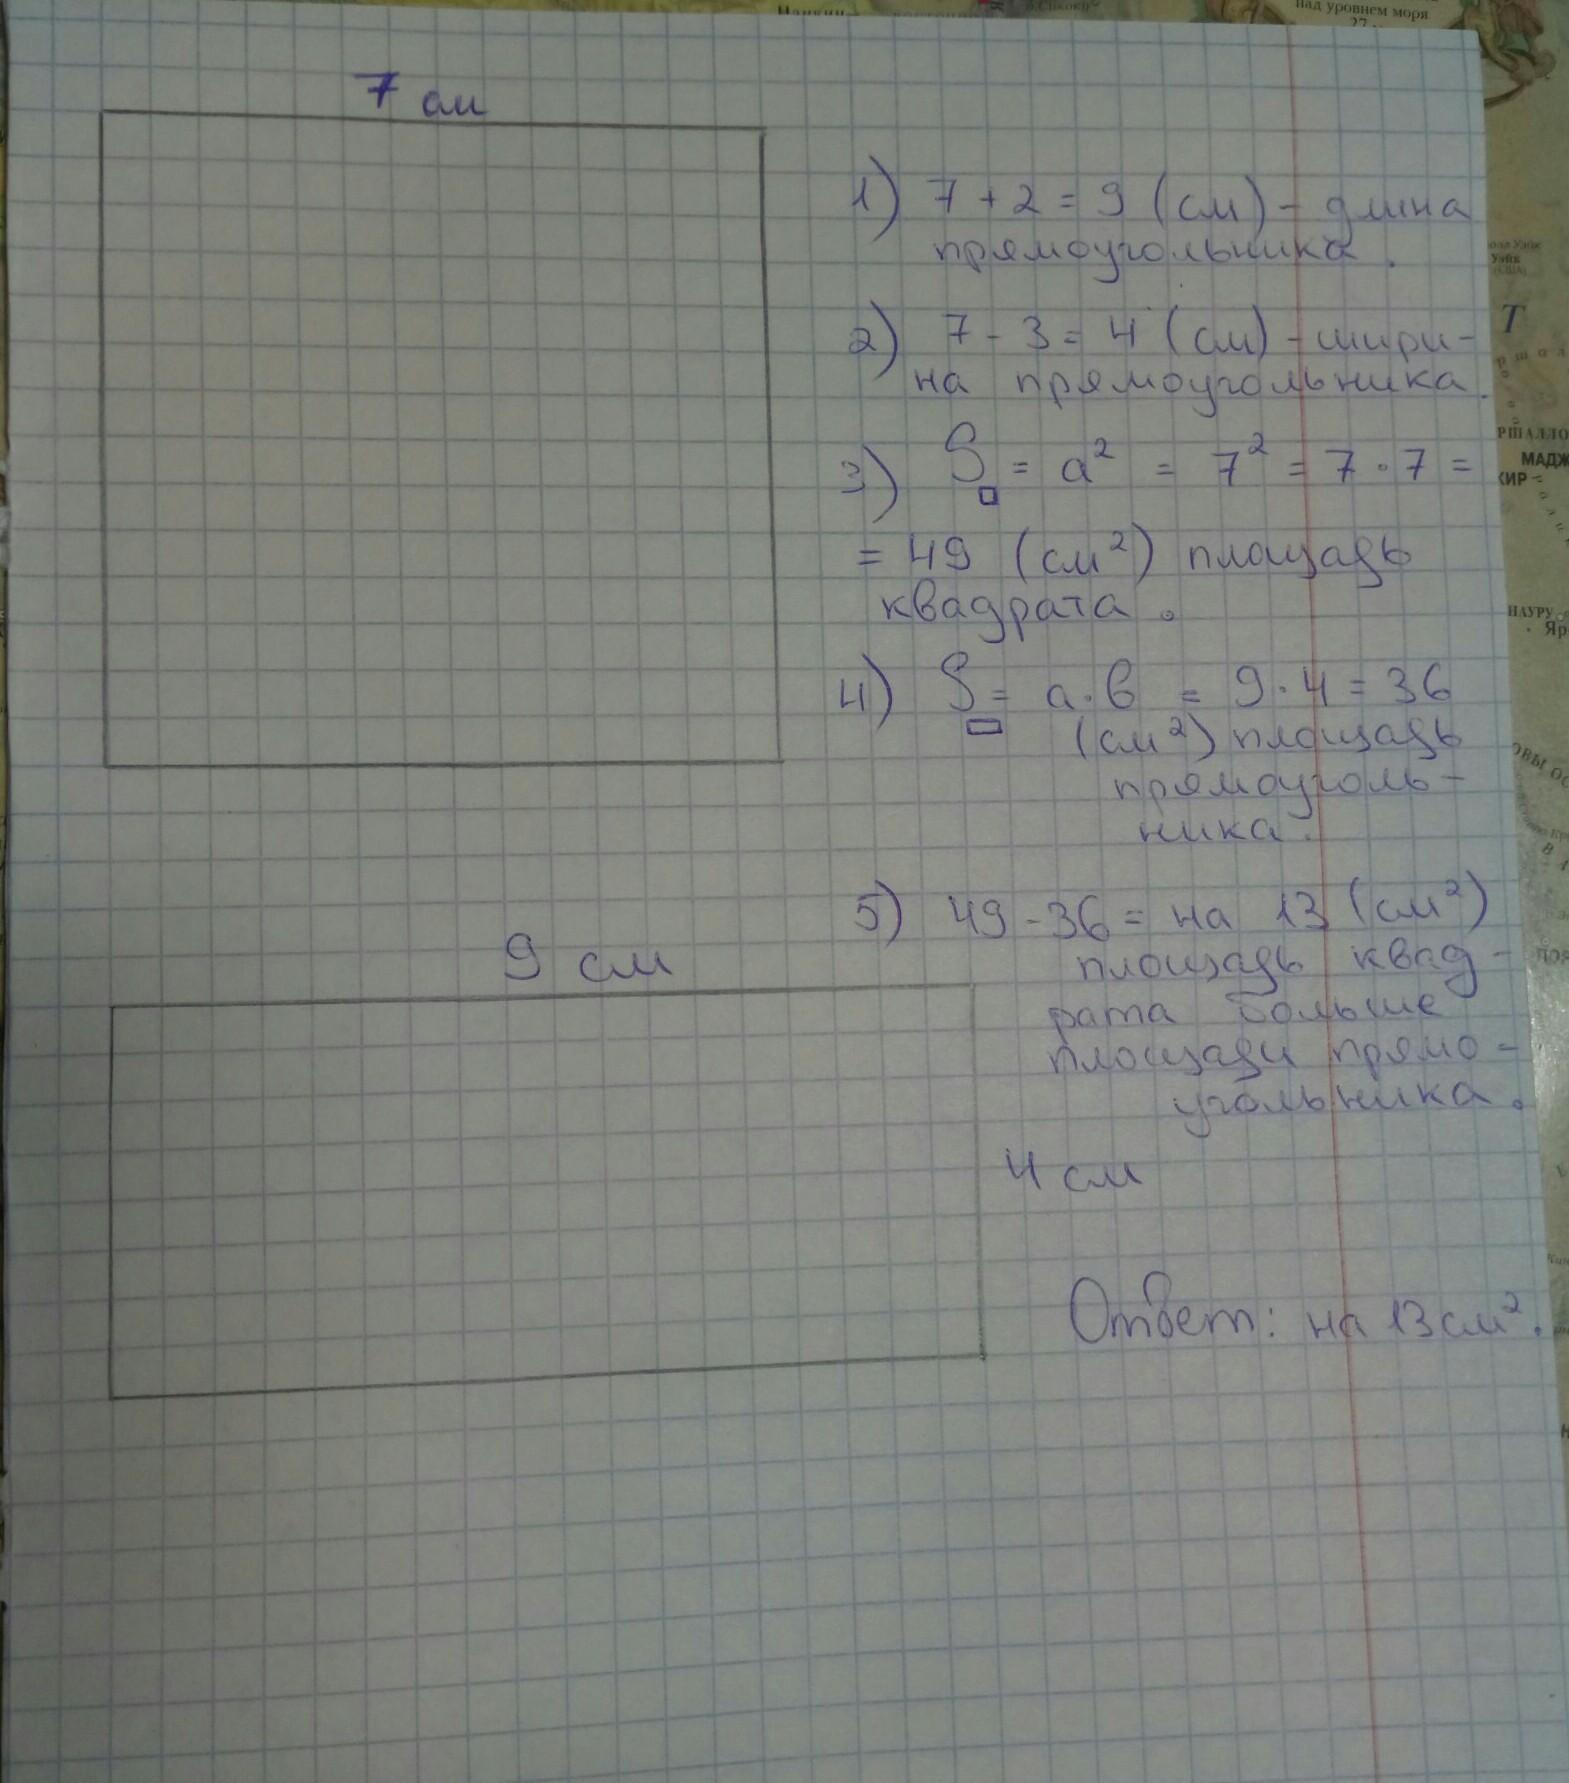 над уровнем моря
27
7 см
1) 7 + 2 = 9 (см) - длина
прямоугольника.
2) 7 - 3 = 4 (см) - шири-
на прямоугольника.
3) S□ = a² = 7² = 7 · 7 =
= 49 (см²) площадь
квадрата.
4) S▭ = a · в = 9 · 4 = 36
(см²) площадь
прямоуголь-
ника.
5) 49 - 36 = на 13 (см²)
площадь квад-
рата больше
площади прямо-
угольника.
9 см
4 см
Ответ: на 13 см².
Уэйк
(США)
Т
РШАЛЛО
МАДЖ
КИР
НАУРУ
Яр